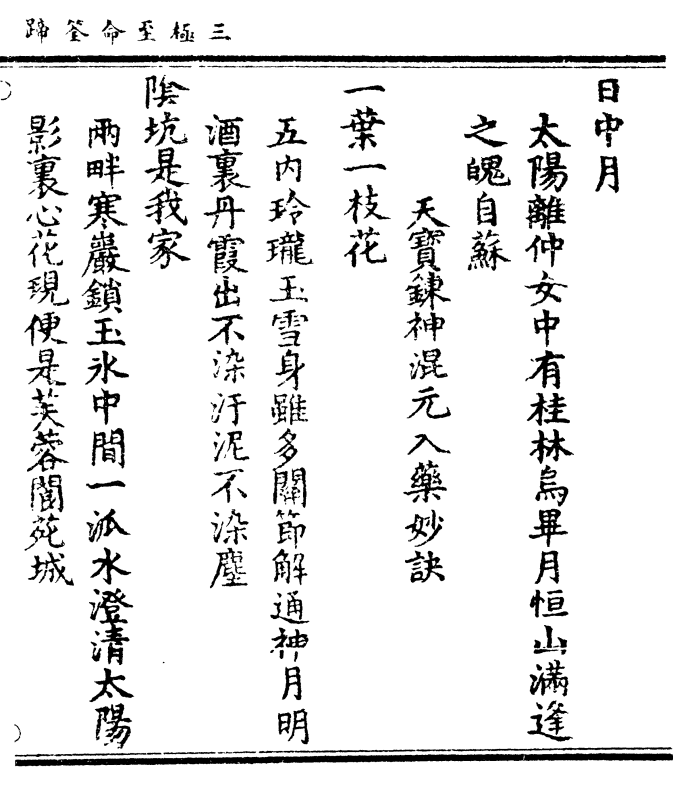 三極至命筌蹄
日中月
太陽離仲女中有桂林烏畢月恒山滿逢
之魄自蘇
天寶鍊神混元入藥妙訣
一葉一枝花
五內玲瓏玉雪身雖多關節解通神月明
酒裏丹霞出不染汙泥不染塵
陰坑是我家
兩畔寒巖鎖玉氷中間一泒水澄清太陽
影裏心花現便是芙蓉閬苑城